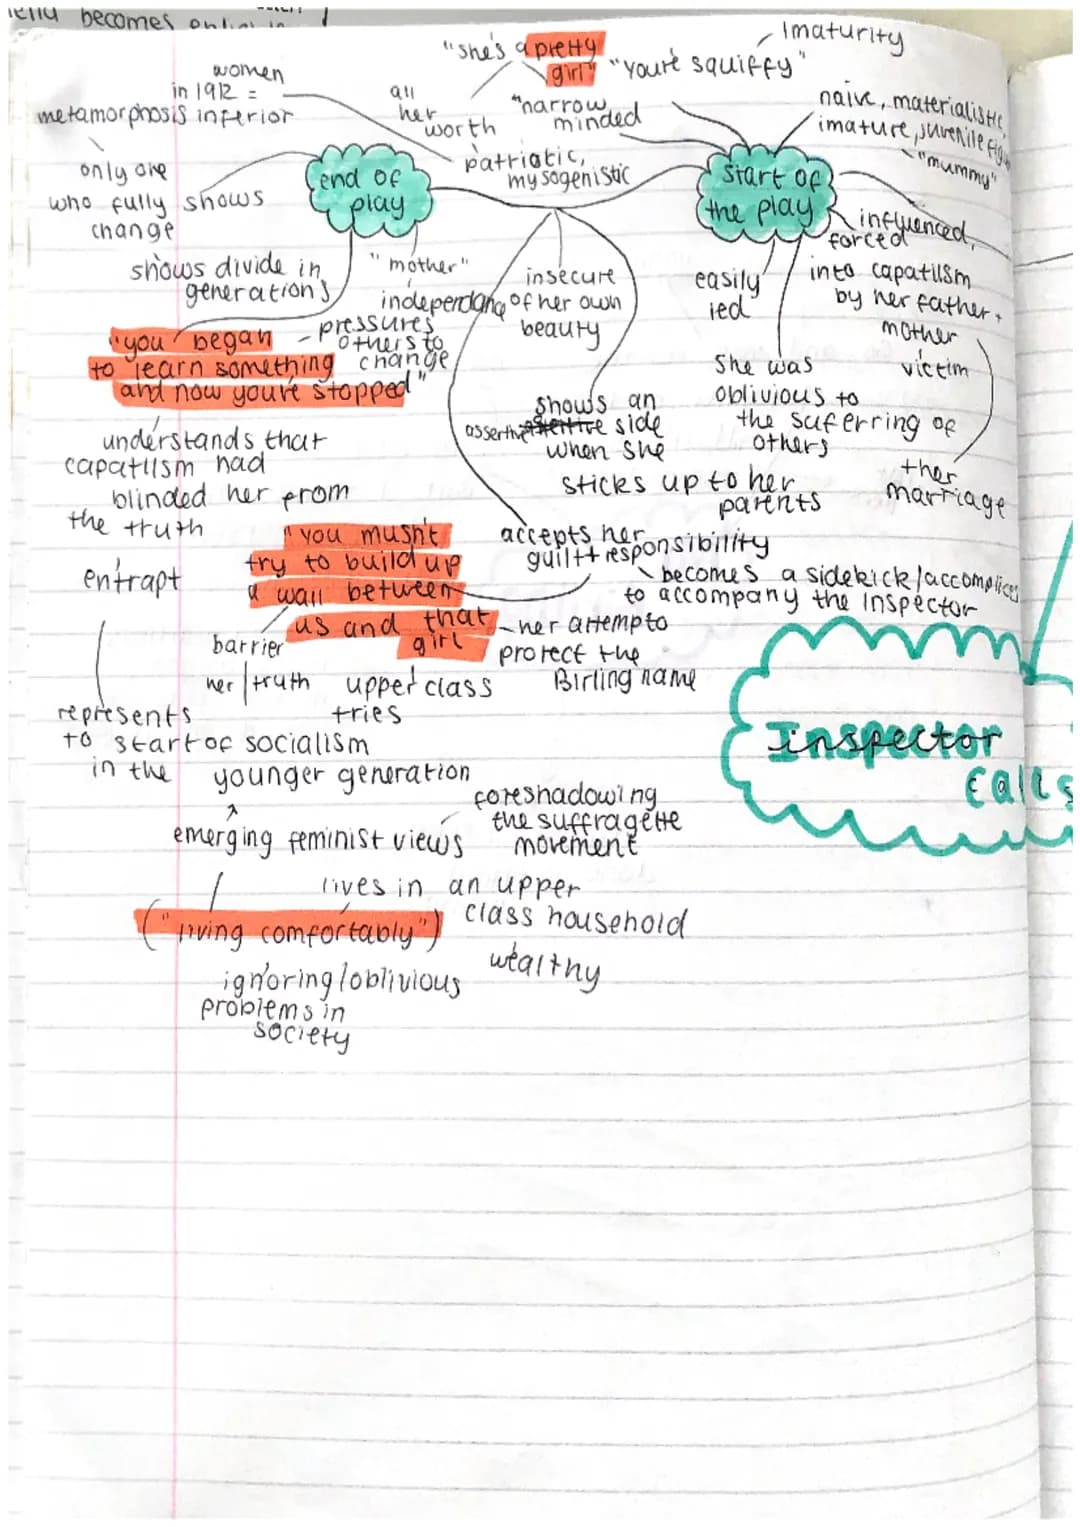 becomes
"she's a pretty
girl"
"you're squiffy"
Imaturity
women
in 1912 =
inferior
metamorphosis
only one
who fully shows
change
all
her
worth
"narrow
minded
patriotic,
mysogenistic
naive, materialistic,
imature, juvenile
"mummy"
end of
play
start of
the play
shows divide in
generations
"mother"
independance
pressures
others to
change
insecure
of her own
beauty
easily
led
influenced,
forced
into capatilsm
by her father +
mother
victim
+her
marriage
She was
oblivious to
the suferring of
others
"you began
to learn something
and now you're stopped"
shows an
assertive side
when she
sticks up to her
parents
understands that
capatilsm had
blinded her from
the truth
entrapt
"you musn't
try to build up
a wall between
us and that
girl
accepts her
guilt + responsibility
becomes a sidekick/accomplice
to accompany the inspector
her attempt to
protect the
Birling name
barrier
her | truth
upper class
tries
represents
to start of socialism
in the younger generation
emerging feminist views
foreshadowing
the suffragette
movement
lives in an upper
class household
wealthy
("living comfortably")
ignoring/oblivious
problems in
society
Inspector
calls